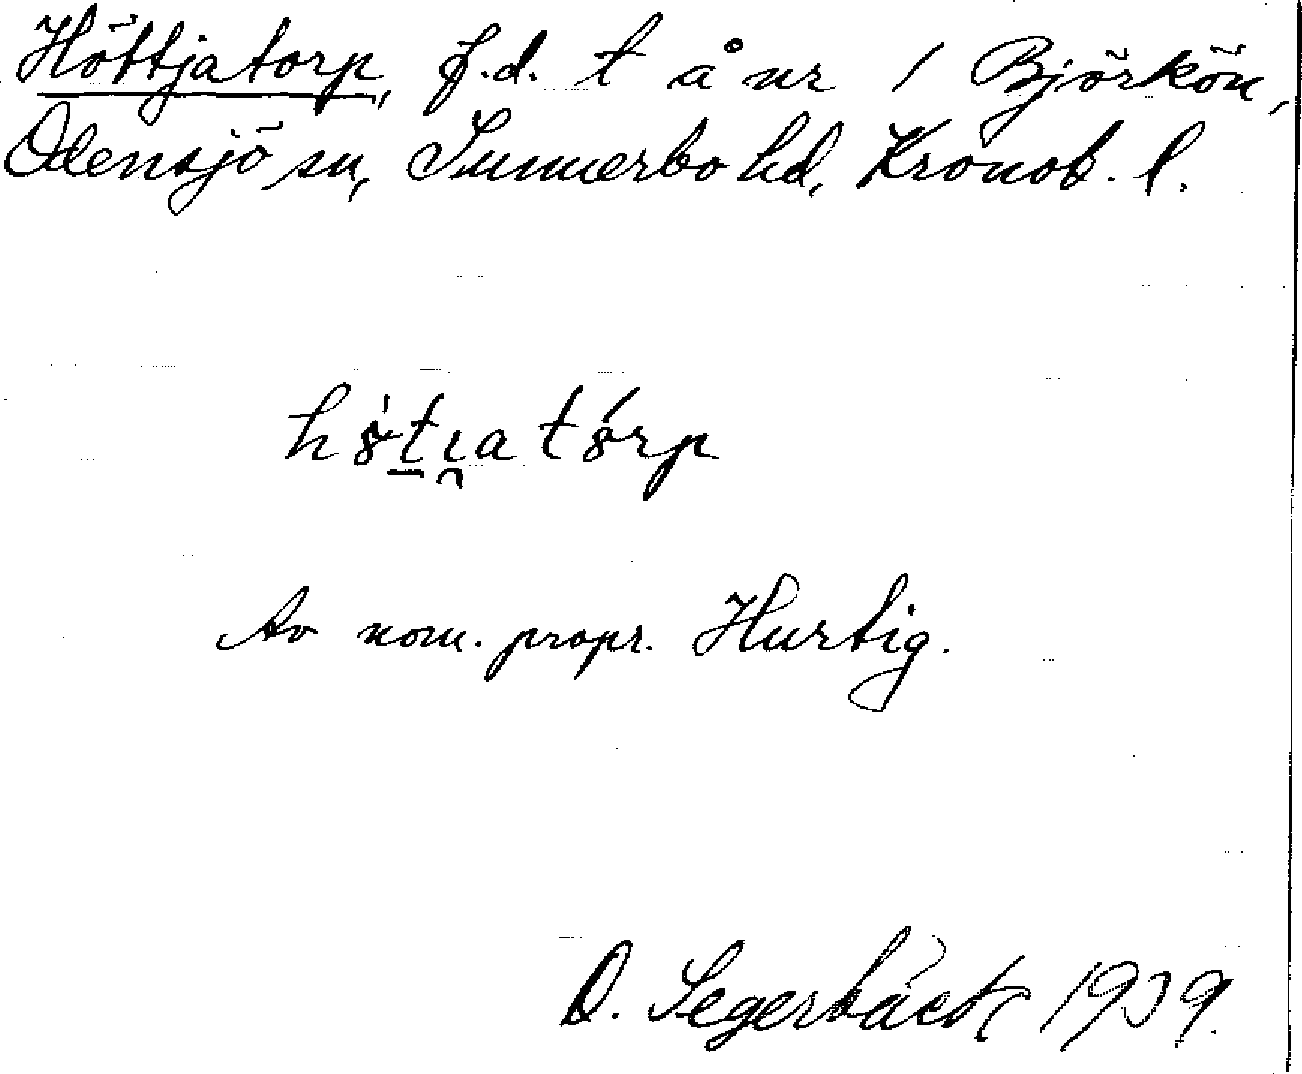 Höttjatorp, f.d. t å nr 1 Björkön,
Odensjö sn, Sunnerbo hd, Kronob. l.
Av nom. propr. Hurtig.
O. Segerbäck 1939.